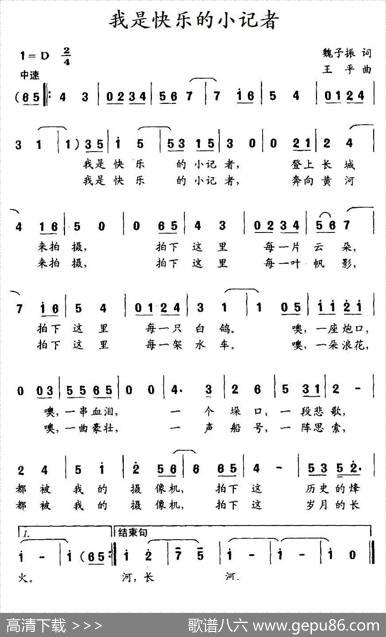 我是快乐的小记者
1=D 2/4
魏子振 词
中速
王平 曲
(65): 4 3 | 0234 | 567 | 7 165 | 54 | 0124
3 1 | 1) 35 | 1 5 | 5315 | 5 | 0 0 | 5 5 3
我是快乐 的小记者, 登上长城
我是快乐 的小记者, 奔向黄河
4 16 | 5 0 | 0 65 | 4 3 | 0234 | 567
来拍摄, 拍下这里 每一片云朵,
来拍摄, 拍下这里 每一叶帆影,
7 165 | 54 | 0124 | 3 1 | 1 05 | 1121
拍下这里 每一只白鸽。 噢,一座炮口,
拍下这里 每一架水车。 噢,一朵浪花,
0 03 | 5565 | 0 0 | 4. 3 | 2 6 | 5 31 | 2 -
噢,一串血泪, 一个垛口,一段悲歌,
噢,一曲豪壮, 一声船号,一阵思索,
2 4 | 5 1 | 2 56 | 6 065 | 1 2 | - - | 5352
都被我的摄像机,拍下这 历史的烽
都被我的摄像机,拍下这 岁月的长
1. 结束句
1 - | 1 (65): | 1 2 | 7 5 | 1 - | 1 - | 1 0
火。 河,长 河.
高清下载 >>> 歌谱八六 www.gepu86.com